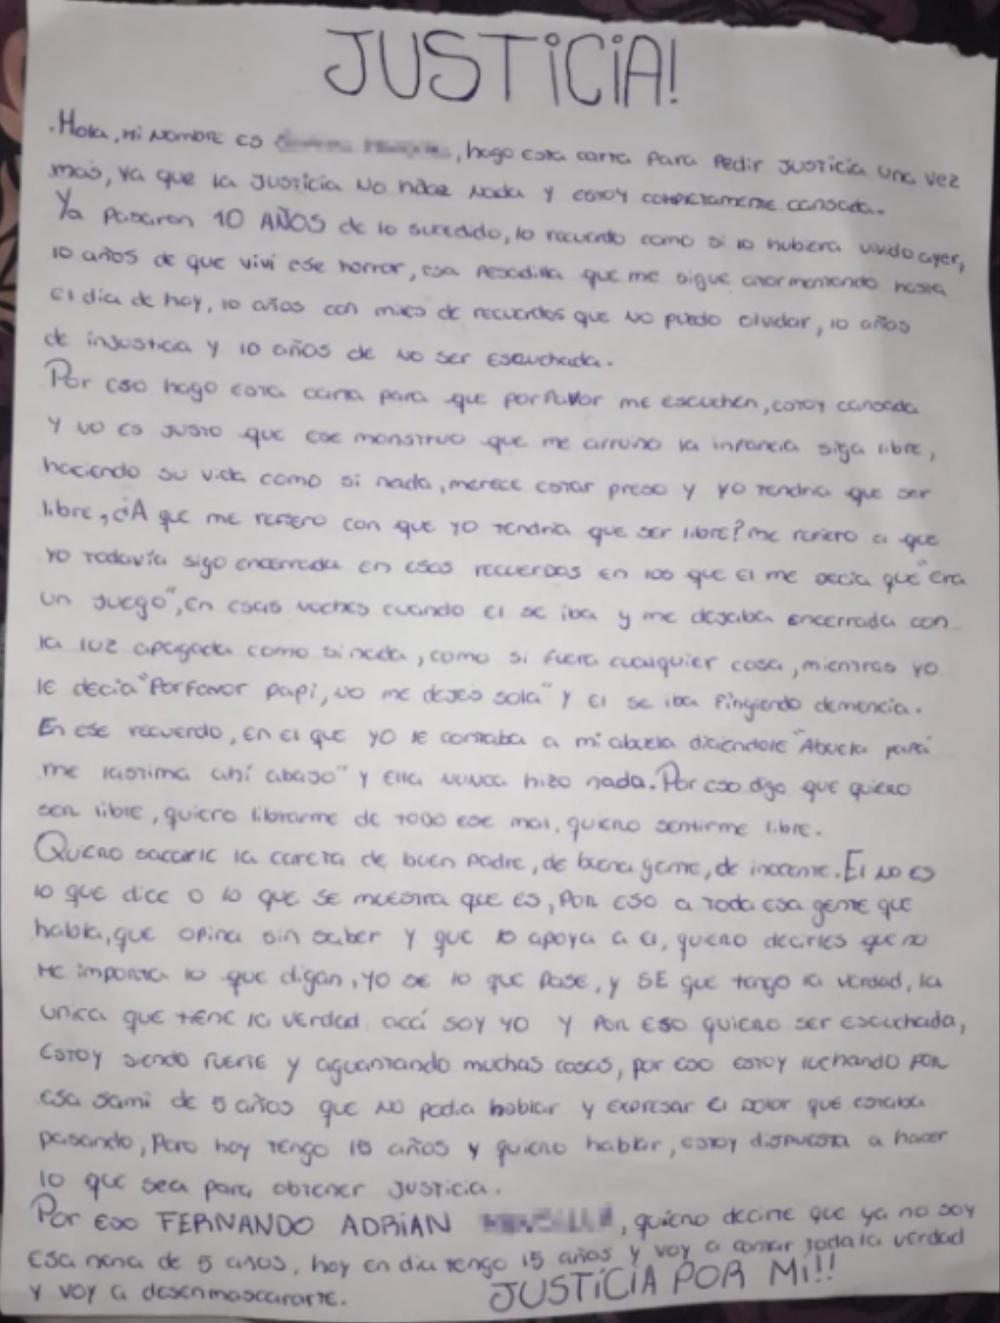 JUSTICIA!
. Hola, mi nombre es, hago esta carta para pedir justicia una vez
mas, ya que la justicia no hace nada y estoy completamente cansada.
Ya pasaron 10 AÑOS de lo sucedido, lo recuerdo como si lo hubiera vivido ayer,
10 años de que viví ese horror, esa pesadilla que me sigue atormentando hasta
el día de hoy, 10 años con miles de recuerdos que no puedo olvidar, 10 años
de injusticia y 10 años de no ser escuchada.
Por eso hago esta carta para que por favor me escuchen, estoy cansada
y no es justo que ese monstruo que me arruino la infancia siga libre,
haciendo su vida como si nada, merece estar preso y yo tendria que ser
libre, ¿A que me refiero con que yo tendria que ser libre? me refiero a que
yo todavía sigo encerrada en esos recuerdos en los que el me decia que "era
un juego", en esas noches cuando el se iba y me dejaba encerrada con
la luz apagada como si nada, como si fuera cualquier cosa, mientras yo
le decia "Por favor papi, no me dejes sola" y el se iba fingiendo demencia.
En ese recuerdo, en el que yo le contaba a mi abuela diciendole "Abuela papá
me lastima ahí abajo" y ella nunca hizo nada. Por eso digo que quiero
ser libre, quiero librarme de todo ese mal, quiero sentirme libre.
Quiero sacarle la careta de buen padre, de buena gente, de inocente. El no es
lo que dice o lo que se muestra que es, por eso a toda esa gente que
habla, que opina sin saber y que lo apoya a el, quiero decirles que no
me importa lo que digan, yo se lo que pase, y SE que tengo la verdad, la
unica que tiene la verdad acá soy yo y por eso quiero ser escuchada,
estoy siendo fuerte y aguantando muchas cosas, por eso estoy luchando por
esa sami de 5 años que no podia hablar y expresar el dolor que estaba
pasando, pero hoy tengo 15 años y quiero hablar, estoy dispuesta a hacer
lo que sea para obtener justicia.
Por eso FERNANDO ADRIAN, quiero decirte que ya no soy
esa nena de 5 años, hoy en dia tengo 15 años y voy a contar toda la verdad
y voy a desenmascararte.
JUSTICIA POR MI!!